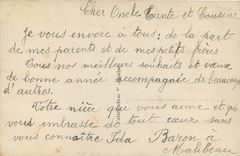 Cher Oncle Tante et Cousine
Je vous envoie à tous; de la part
de mes parents et de mes petits frères
Tous nos meilleurs souhaits et vœux
de bonne année accompagnée de beaucoup
d'autres.
Votre nièce qui vous aime et qui
vous embrasse de tout cœur sans
vous connaître Ida Baron à
Mirebeau